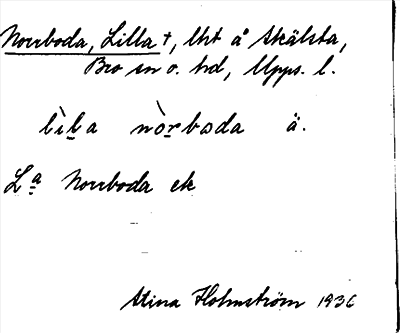 Norrboda, Lilla †, lht å Skälsta,
Bro sn o. hd, Upps. l.
lìla nòrboda ä.
La Norrboda ek
Stina Holmström 1936